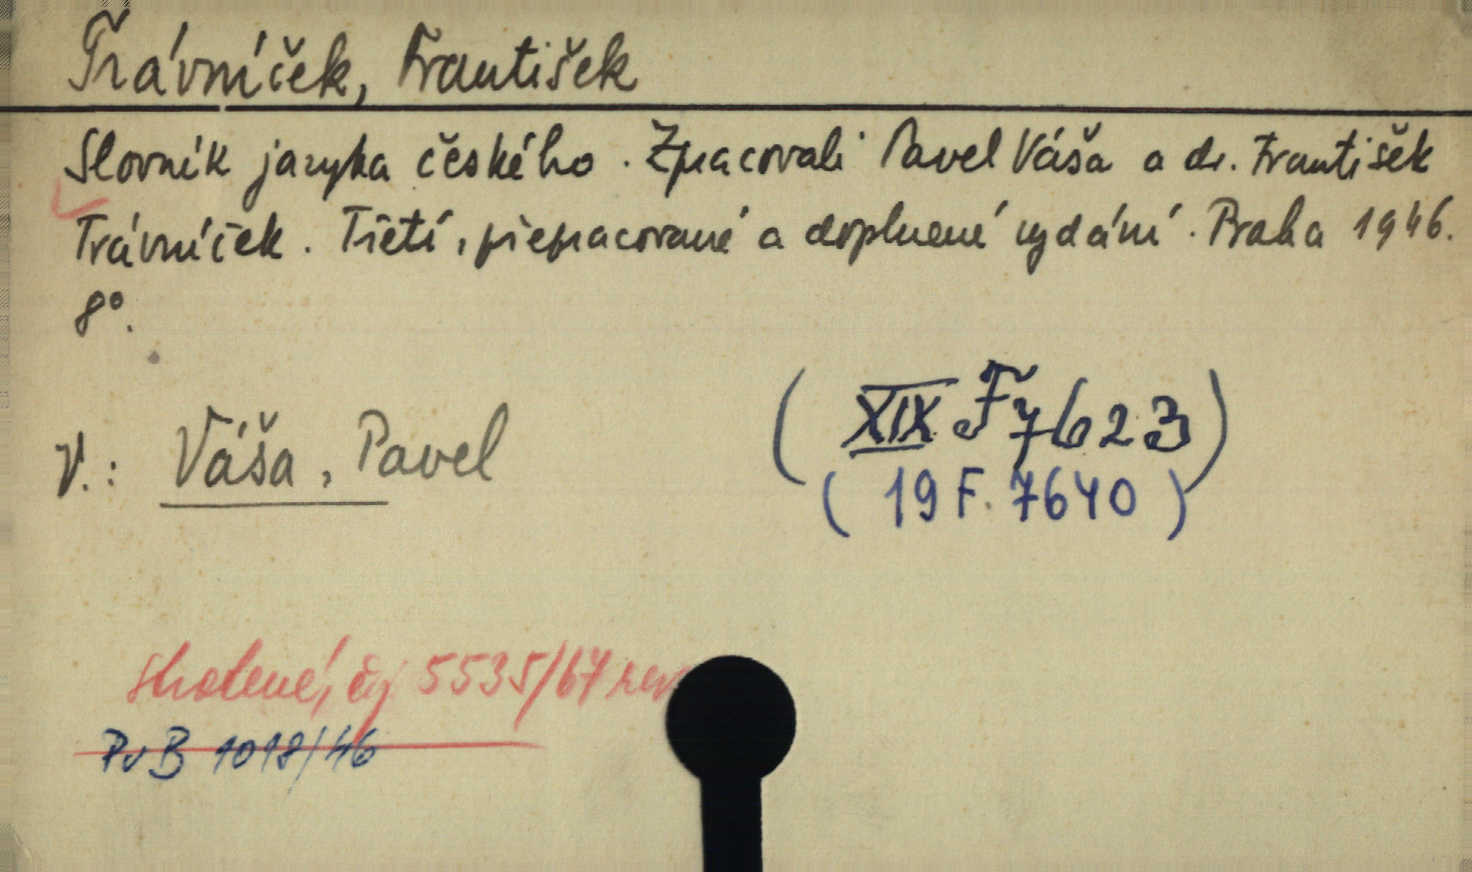 Trávníček, František
Slovník jazyka českého. Zpracovali Pavel Váša a dr. František
Trávníček. Třetí, přepracované a doplnené vydání. Praha 1946.
8°.
V.: Váša, Pavel
( XIX F 7623 )
( 19 F. 7640 )
čj 5535/67 rev
Pv B 1018/46